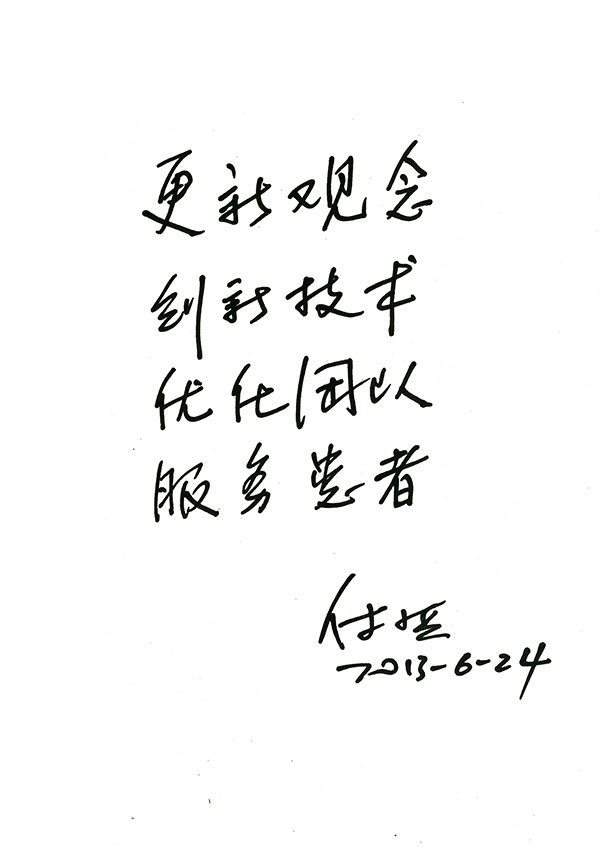 更新观念
创新技术
优化团队
服务患者
2013-6-24